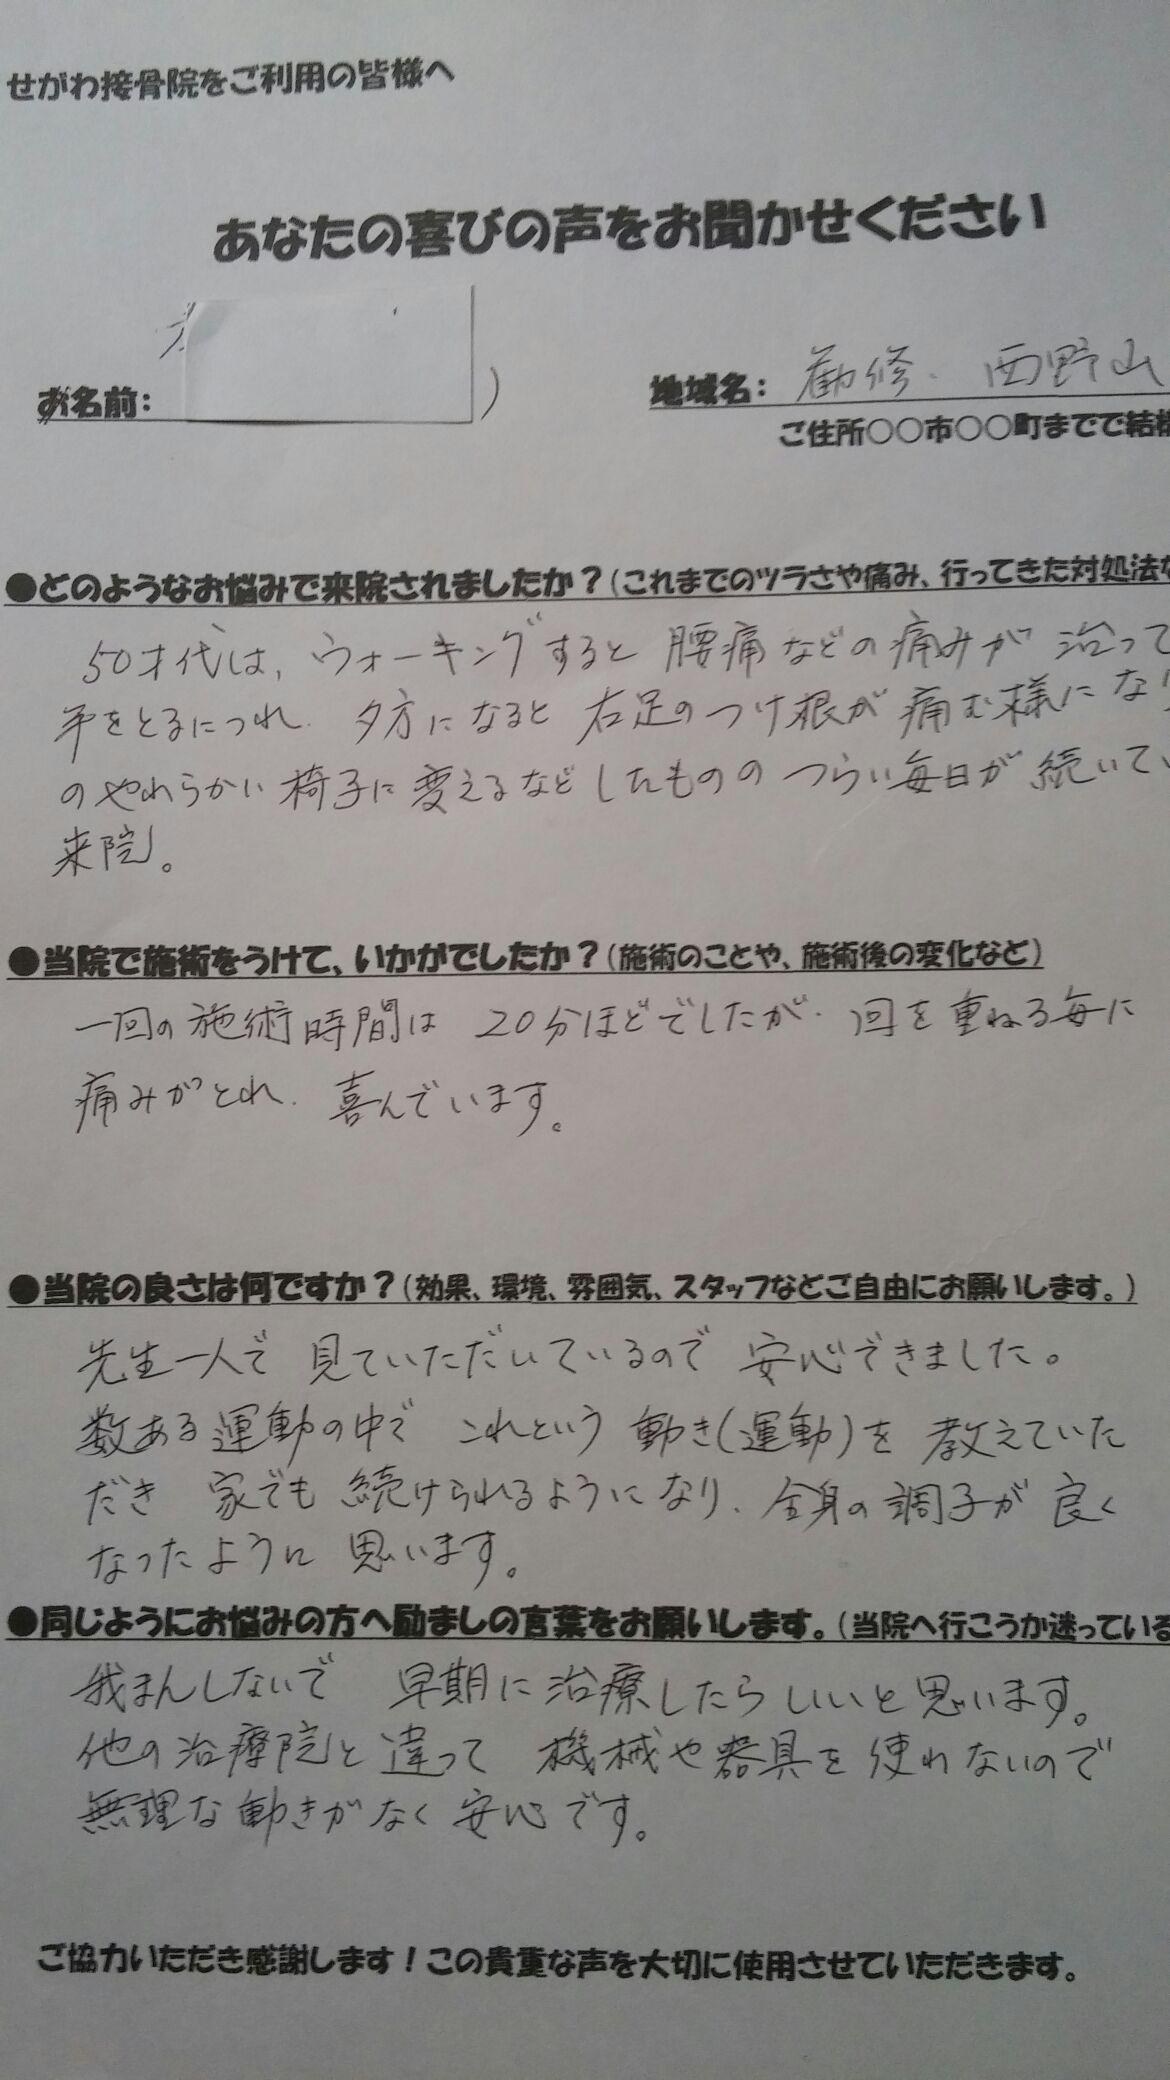 せがわ接骨院をご利用の皆様へ
あなたの喜びの声をお聞かせください
お名前:
)
地域名: 勧修、西野山
ご住所○○市○○町までで結構
●どのようなお悩みで来院されましたか?(これまでのツラさや痛み、行ってきた対処法な
50才代は、ウォーキングすると 腰痛などの痛みが 治って
年をとるにつれ、夕方になると 右足のつけ根が 痛む様になり
のやわらかい椅子に変えるなどしたものの つらい毎日が 続いてい
来院。
●当院で施術をうけて、いかがでしたか?(施術のことや、施術後の変化など)
一回の施術時間は 20分ほどでしたが、回を重ねる毎に
痛みがとれ、喜んでいます。
●当院の良さは何ですか?(効果、環境、雰囲気、スタッフなどご自由にお願いします。)
先生一人で 見ていただいているので 安心できました。
数ある運動の中で これという 動き(運動)を 教えていた
だき 家でも 続けられるようになり、全身の調子が 良く
なったように 思います。
●同じようにお悩みの方へ励ましの言葉をお願いします。(当院へ行こうか迷っている
我まんしないで 早期に治療したらいいと思います。
他の治療院と違って 機械や器具を使わないので
無理な動きがなく安心です。
ご協力いただき感謝します!この貴重な声を大切に使用させていただきます。